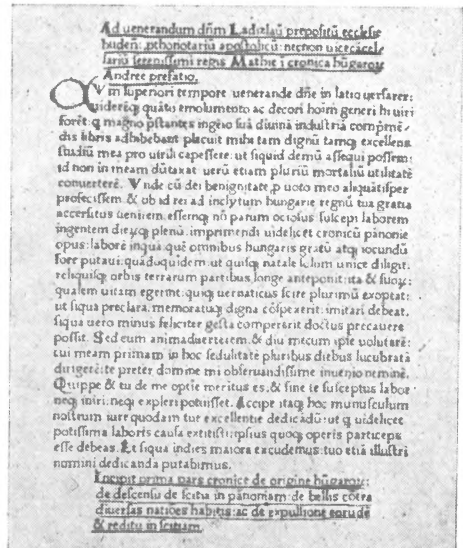 Ad uenerandum dñm Ladizlaũ prepositũ ecclesie
budeñ: ꝓthonotariũ apostolicũ: necnon uicecãcel
lariũ serenissimi regis Mathie ĩ cronica hũgaroꝝ
Andree prefatio.
QVm superiori tempore uenerande dñe in latio uersarer:
uideręq; quãto emolumento ac decori hoĩm generi hi uiri
forẽt: q magno p̃stantes ingẽio suã diuinã industriã comp̃mẽ
dis libris adhibebant placuit mihi tam dignũ tamq; excellens
studiũ mea pro uirili capessere: ut siquid demũ assequi possem:
id non in meam dũtaxat uerũ etiam pluriũ mortaliũ utilitatẽ
conuerterẽ. Vnde cũ dei benignitate, p uoto meo aliquãtisper
profecissem. & ob id rei ad inclytum hungarie regnũ tua gratia
accersitus uenirem. essemq; nõ parum ociosus. suscepi laborem
ingentem dieꝝq; plenũ. imprimendi uidelicet cronicũ pãnonie
opus: laborẽ inquã quẽ omnibus hungaris gratũ atq; iocundũ
fore putaui: quãdoquidem. ut quisq; natale solum unice diligit.
reliquisq; orbis terrarum partibus longe anteponit: ita & suoꝝ:
qualem uitam egerint. quiq; uernaticus scire plurimũ exoptat:
ut siqua preclara. memoratuq; digna cõspexerit: imitari debeat.
siqua uero minus feliciter gesta compererit doctus precauere
possit. Sed eum animaduerterem. & diu mecum ipse uolutarẽ:
cui meam primam in hoc sedulitatẽ pluribus diebus lucubratã
dirigerẽ: te preter domine mi obseruandissime inuenio neminẽ.
Quippe & tu de me optie meritus es. & sine te susceptus labor
neq; iniri: neq; expleri potuisset. Accipe itaq; hoc munusculum
nostrum iure quodam tue excellentie dedicãdũ: ut q uidelicet
potissima laboris causa extitisti: ipsius quoq; operis particeps
esse debeas. Et siqua indies maiora excudemus: tuo etiã illustri
nomini dedicanda putabimus.
Incipit prima pars cronice de origine hũgaroꝝ:
de descensu de scitia in pãnoniam: de bellis cõtra
diuersas natiões habitis: ac de expulsione eorũdẽ
& reditu in scitiam.